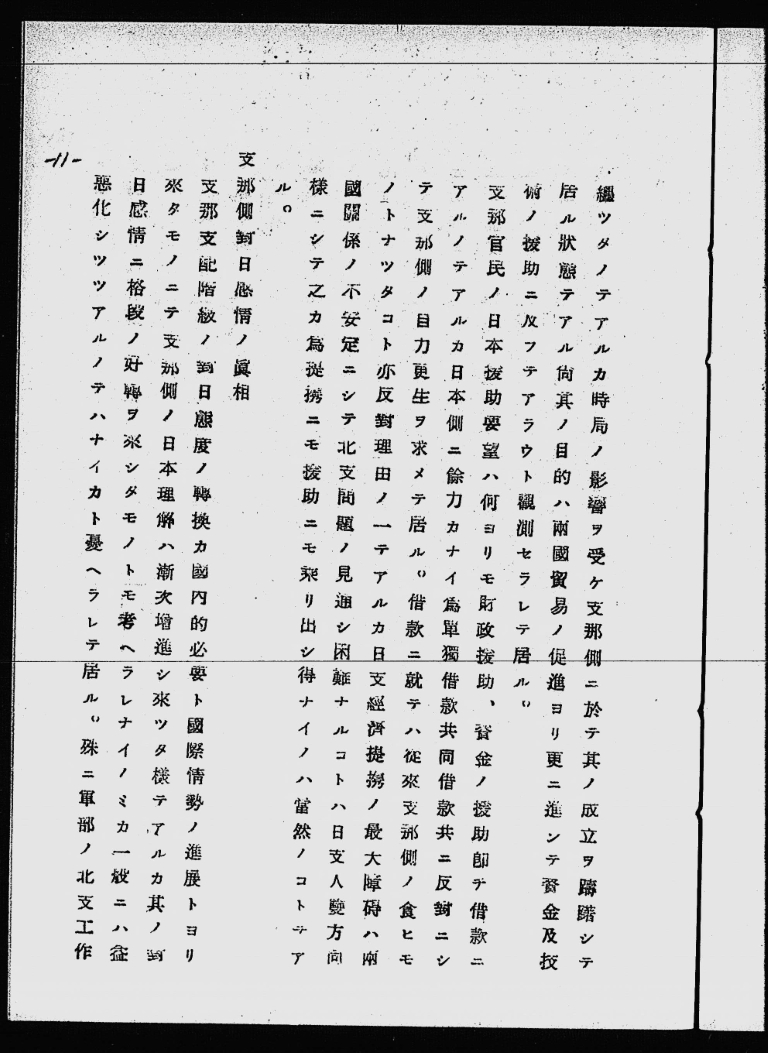 繼ツタノテアルカ時局ノ影響ヲ受ケ支那側ニ於テ其ノ成立ヲ躊躇シテ
居ル狀態テアル尙其ノ目的ハ兩國貿易ノ促進ヨリ更ニ進ンテ資金及技
術ノ援助ニ及フテアラウト觀測セラレテ居ル。
支那官民ノ日本援助要望ハ何ヨリモ財政援助、資金ノ援助卽チ借款ニ
アルノテアルカ日本側ニ餘力カナイ爲單獨借款共同借款共ニ反對ニシ
テ支那側ノ自力更生ヲ求メテ居ル。借款ニ就テハ從來支那側ノ食ヒモ
ノトナツタコト亦反對理由ノ一テアルカ日支經濟提携ノ最大障碍ハ兩
國關係ノ不安定ニシテ北支問題ノ見通シ困難ナルコトハ日支人雙方同
樣ニシテ之カ爲提携ニモ援助ニモ乘リ出シ得ナイノハ當然ノコトテア
ル。
支那側對日感情ノ眞相
支那支配階級ノ對日態度ノ轉換カ國內的必要ト國際情勢ノ進展トヨリ
來タモノニテ支那側ノ日本理解ハ漸次增進シ來ツタ樣テアルカ其ノ對
日感情ニ格段ノ好轉ヲ來シタモノトモ考ヘラレナイノミカ一般ニハ益
惡化シツツアルノテハナイカト憂ヘラレテ居ル。殊ニ軍部ノ北支工作
-11-